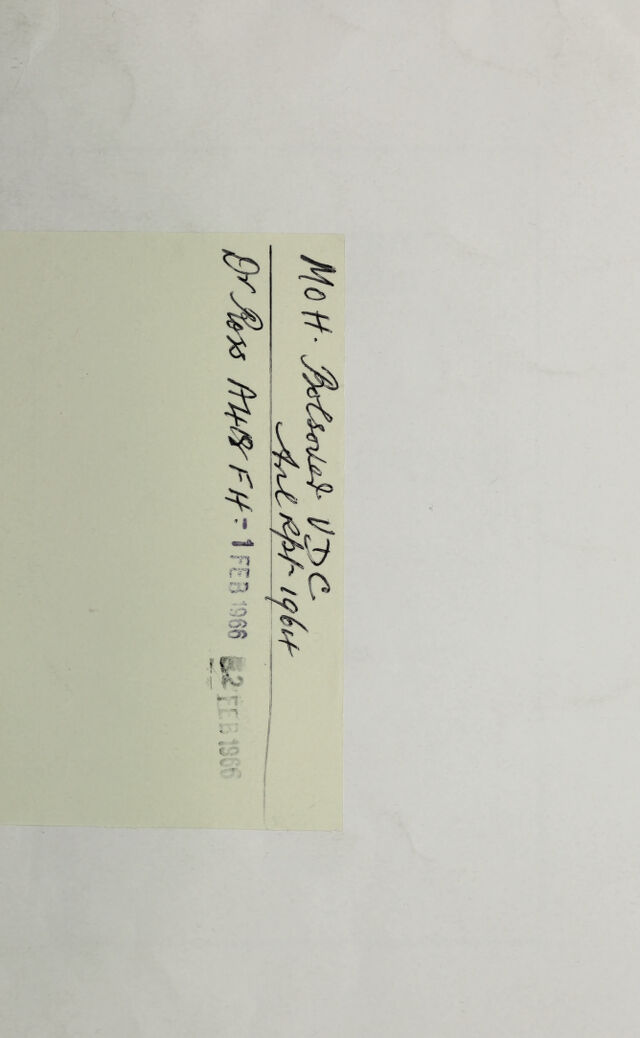 MOH. Bolsover UDC
Anl Rpt 1964
Dr Ross AHB FH. - 1 FEB 1966 2 FEB 1966